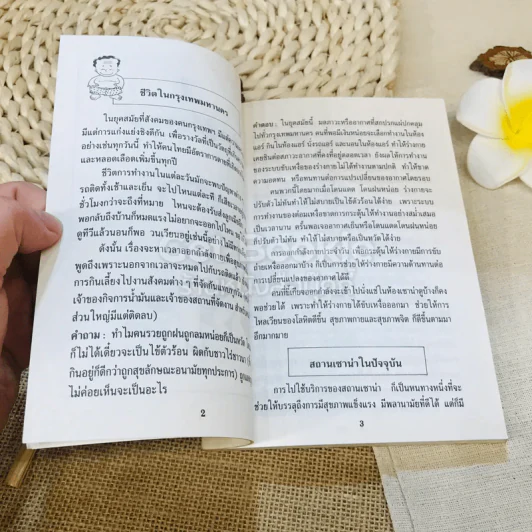 ชีวิตในกรุงเทพมหานคร
ในยุคสมัยที่สังคมของคนกรุงเทพฯ
มีแต่การแก่งแย่งชิงดีกัน เพื่อรางวัลที่เป็นวัตถุ
อย่างเช่นทุกวันนี้ ทำให้คนไทยมีอัตราการตาย
และหลอดเลือดเพิ่มขึ้นทุกปี
ชีวิตการทำงานในแต่ละวันมักจะพบปัญหา
รถติดทั้งเช้าและเย็น จะไปไหนแต่ละที ก็เสีย
ชั่วโมงกว่าจะถึงที่หมาย ไหนจะต้องรับส่งลูก
พอกลับถึงบ้านก็หมดแรงไม่อยากจะออกไปไหน
ดูทีวีแล้วนอนก็พอ วนเวียนอยู่เช่นนี้อย่างไม่มี
ดังนั้น เรื่องจะหาเวลาออกกำลังกาย
พูดถึงเพราะนอกจากเวลาจะหมดไปกับรถติดแล้ว
การกินเลี้ยงไปงานสังคมต่างๆ ที่จัดกัน
เจ้าของกิจการน้ำมันและเจ้าของสถานที่จัดงาน
ส่วนใหญ่มีแต่ติดลบ)
คำถาม : ทำไมคนรวยถูกฝนถูกลมหน่อยก็เป็นหวัด
ก็ไม่ได้เดี๋ยวจะเป็นไข้ตัวร้อน ผิดกับชาวไร่ชาวนา
กินอยู่ก็ดีกว่าถูกสุขลักษณะอนามัยทุกประการ)
ไม่ค่อยเห็นจะเป็นอะไร
2
คำตอบ : ในยุคสมัยนี้ มลภาวะหรืออากาศที่สกปรกแผ่ปกคลุม
ไปทั่วกรุงเทพมหานคร คนที่พอมีเงินหน่อยจะเลือกทำงานในห้อง
แอร์ กินในห้องแอร์ นั่งรถแอร์ และนอนในห้องแอร์ ทำให้ร่างกาย
เคยชินต่อสภาวะอากาศที่คงที่อยู่ตลอดเวลา ยังผลให้การทำงาน
ของระบบขับเหงื่อของร่างกายไม่ได้ทำงานตามปกติ ทำให้ขาด
ความอดทน หรือทนทานต่อการแปรเปลี่ยนของอากาศโดยรอบ
คนพวกนี้โดยมากเมื่อโดนแดด โดนฝนหน่อย ร่างกายจะ
ปรับตัวไม่ทัน ทำให้ไม่สบายเป็นไข้ตัวร้อนได้ง่าย เพราะระบบ
การทำงานของต่อมเหงื่อขาดการกระตุ้นให้ทำงานอย่างสม่ำเสมอ
เป็นเวลานาน ครั้นพอเจออากาศเย็นหรือโดนแดดโดนฝนหน่อย
ก็ปรับตัวไม่ทัน ทำให้ไม่สบายหรือเป็นหวัดได้ง่าย
การออกกำลังกายประจำ เพื่อกระตุ้นให้ร่างกายมีการขับ
ถ่ายเหงื่อออกมาบ้าง ก็เป็นการช่วยให้ร่างกายมีความต้านทานต่อ
การเปลี่ยนแปลงของอากาศได้ดี
คนที่ขี้เกียจออกกำลังกาย จะเข้าไปนั่งแช่ในห้องเซาน่าดูบ้างก็คง
พอช่วยได้ เพราะทำให้ร่างกายได้ขับเหงื่อออกมา ช่วยให้การ
ไหลเวียนของโลหิตดีขึ้น สุขภาพกายและสุขภาพจิต ก็ดีขึ้นตามมา
อีกมากมาย
สถานเซาน่าในปัจจุบัน
การไปใช้บริการของสถานเซาน่า ก็เป็นหนทางหนึ่งที่จะ
ช่วยให้บรรลุถึงการมีสุขภาพแข็งแรง มีพลานามัยที่ดีได้ แต่ก็มี
3